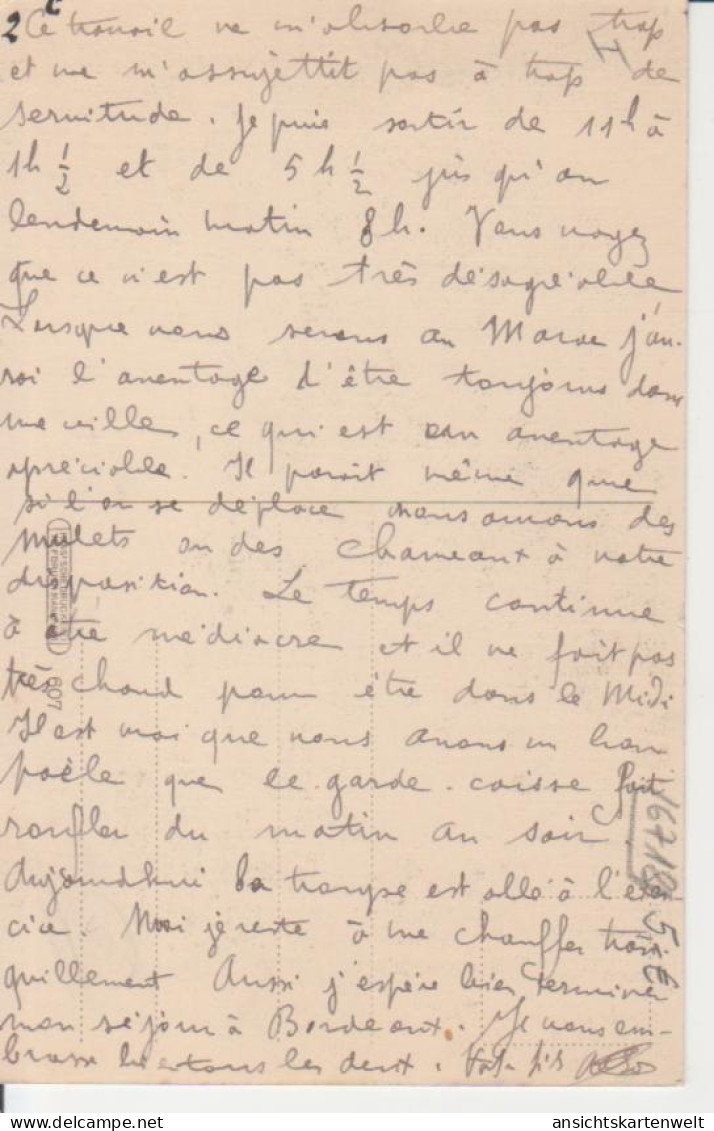 2
Ce travail ne m'absorbe pas trop
et ne m'assujettit pas à trop de
servitude. Je puis sortir de 11h à
1h ½ et de 5h ½ jusqu'au
lendemain matin 8h. Vous voyez
que ce n'est pas très désagréable
Lorsque nous serons au Maroc j'au-
rai l'aventage d'être toujours dans
une ville, ce qui est un aventage
apréciable. Il parait même que
si l'on se déplace nous aurons des
mulets ou des chameaux à notre
disposition. Le temps continue
à être médiocre et il ne fait pas
très chaud pour être dans le Midi
Il est vrai que nous avons un bon
poële que le garde-caisse fait
ronfler du matin au soir.
Aujourdhui la troupe est allé à l'exer
cice. Moi je reste à me chauffer tran
quillement Aussi j'espère bien terminer
mon séjour à Bordeaux. Je vous em-
brasse bien tous les deux. fils
607
16718
5.-E
ansichtskartenwelt